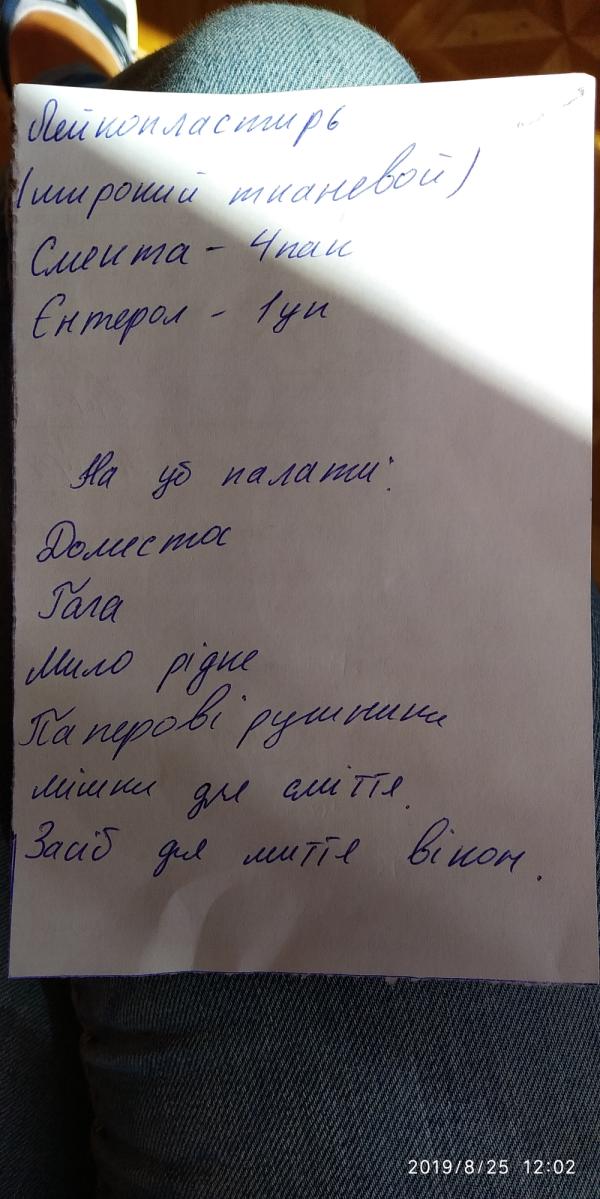 Лейкопластирь
(широкий тканевой)
Смекта - 4 пак
Єнтерол - 1 уп
На уб палати:
Доместос
Гала
Мило рідке
Паперові рушники
мішки для сміття.
Засіб для миття вікон.
2019/8/25 12:02